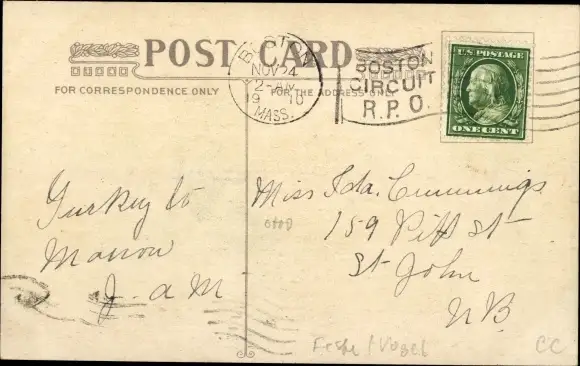 POST CARD
FOR CORRESPONDENCE ONLY
FOR THE ADDRESS ONLY
BOSTON
NOV 24
2-AM
1910
MASS.
BOSTON
CIRCUIT
R.P.O.
U.S. POSTAGE
ONE CENT
Turkey to
Morrow
J. a M
Miss Ida. Cummings
159 Pitt St
St John
NB
CC